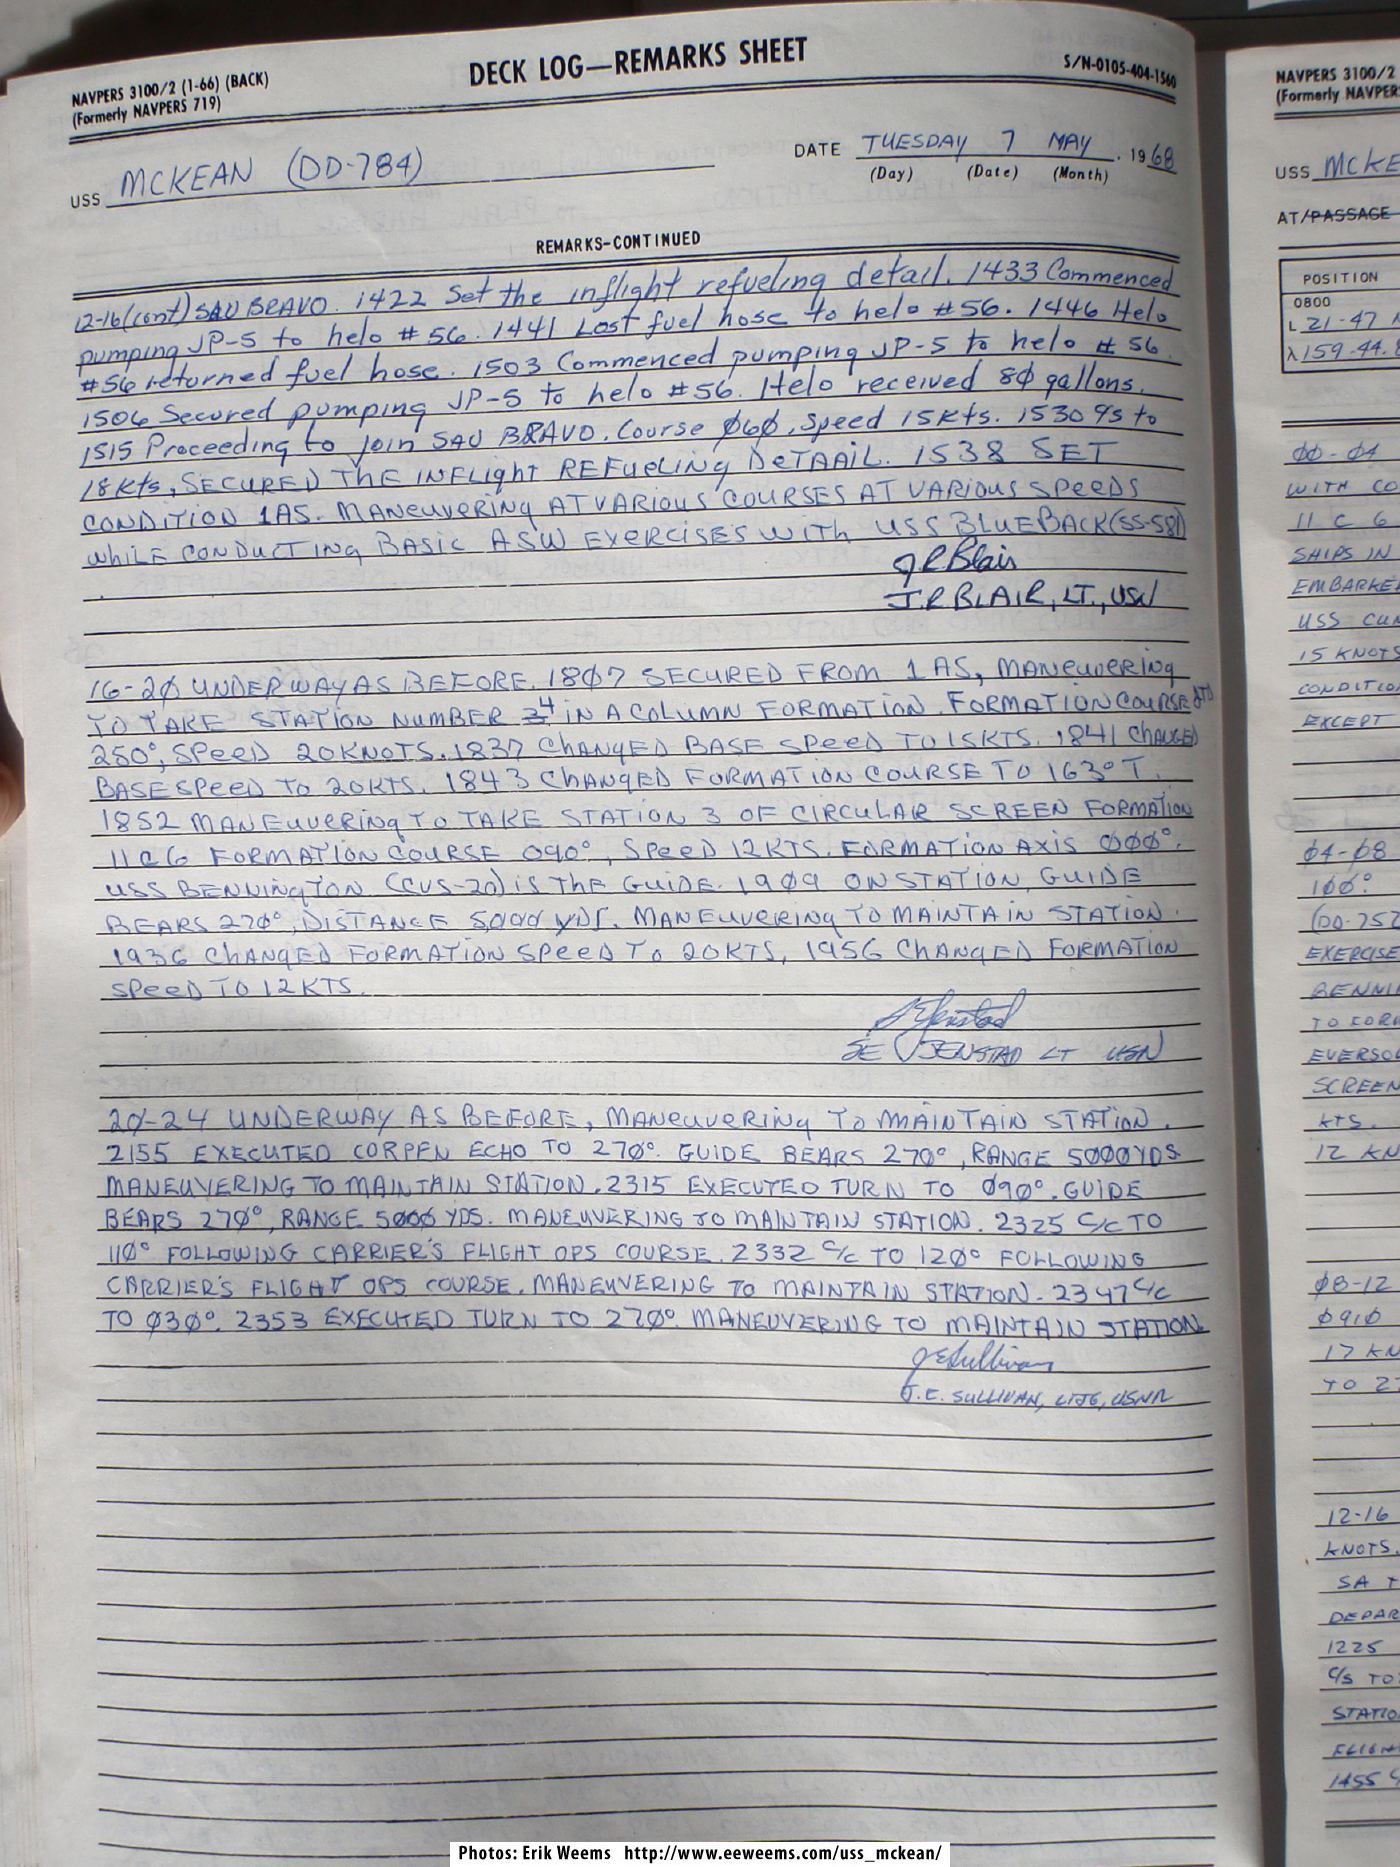 NAVPERS 3100/2 (1-66) (BACK)
(Formerly NAVPERS 719)
DECK LOG—REMARKS SHEET
S/N-0105-404-1560
USS MCKEAN (DD-784)
DATE TUESDAY 7 MAY, 1968
(Day) (Date) (Month)
REMARKS-CONTINUED
12-16 (cont) SAU BRAVO. 1422 Set the inflight refueling detail. 1433 Commenced
pumping JP-5 to helo #56. 1441 Lost fuel hose to helo #56. 1446 Helo
#56 returned fuel hose. 1503 Commenced pumping JP-5 to helo #56.
1506 Secured pumping JP-5 to helo #56. Helo received 8Ø gallons.
1515 Proceeding to join SAU BRAVO. Course Ø6Ø, speed 15kts. 1530 %s to
18kts, SECURED THE INFLIGHT REFUELING DETAAIL. 1538 SET
CONDITION 1AS. MANEUVERING AT VARIOUS COURSES AT VARIOUS SPEEDS
WHILE CONDUCTING BASIC ASW EXERCISES WITH USS BLUEBACK (SS-581)
J R Blair
J. R BLAIR, LT., USN
16-2Ø UNDERWAY AS BEFORE. 18Ø7 SECURED FROM 1 AS, MANEUVERING
TO TAKE STATION NUMBER 4 IN A COLUMN FORMATION. FORMATION COURSE
280°, SPEED 20 KNOTS. 1837 CHANGED BASE SPEED TO 15KTS. 1841 CHANGED
BASE SPEED TO 20KTS. 1843 CHANGED FORMATION COURSE TO 163°T.
1852 MANEUVERING TO TAKE STATION 3 OF CIRCULAR SCREEN FORMATION
11C6 FORMATION COURSE 090°, SPEED 12KTS. FORMATION AXIS ØØØ°.
USS BENNINGTON (CVS-20) IS THE GUIDE. 19Ø9 ON STATION, GUIDE
BEARS 27Ø°, DISTANCE 5000 YDS. MANEUVERING TO MAINTAIN STATION.
1936 CHANGED FORMATION SPEED TO 20KTS, 1956 CHANGED FORMATION
SPEED TO 12KTS.
S E Jenstad
SE JENSTAD LT USN
2Ø-24 UNDERWAY AS BEFORE, MANEUVERING TO MAINTAIN STATION.
2155 EXECUTED CORPEN ECHO TO 27Ø°. GUIDE BEARS 27Ø°, RANGE 5ØØØYDS
MANEUVERING TO MAINTAIN STATION. 2315 EXECUTED TURN TO Ø9Ø°. GUIDE
BEARS 27Ø°, RANGE 5ØØØ YDS. MANEUVERING TO MAINTAIN STATION. 2325 C/C TO
11Ø° FOLLOWING CARRIER'S FLIGHT OPS COURSE. 2332 C/C TO 12Ø° FOLLOWING
CARRIER'S FLIGHT OPS COURSE. MANEUVERING TO MAINTAIN STATION. 2347 C/C
TO Ø3Ø°. 2353 EXECUTED TURN TO 27Ø°. MANEUVERING TO MAINTAIN STATION
J E Sullivan
J. E. SULLIVAN, LTJG, USNR
NAVPERS 3100/2
(Formerly NAVPER
USS MCKE
AT/PASSAGE
POSITION
0800
L 21-47
λ 159-44.
ØØ-Ø4
WITH CO
11 C 6
SHIPS IN
EMBARKE
USS CUN
15 KNOTS
CONDITIO
EXCEPT
Ø4-Ø8
1ØØ°.
(DD-752
EXERCISE
BENNI
TO FOR
EVERSO
SCREEN
KTS.
12 KN
Ø8-12
Ø91Ø
17 KN
TO 2
12-16
KNOTS.
SA
DEPAR
1225
C/S TO
STATIO
FLIGH
1455
Photos: Erik Weems http://www.eeweems.com/uss_mckean/